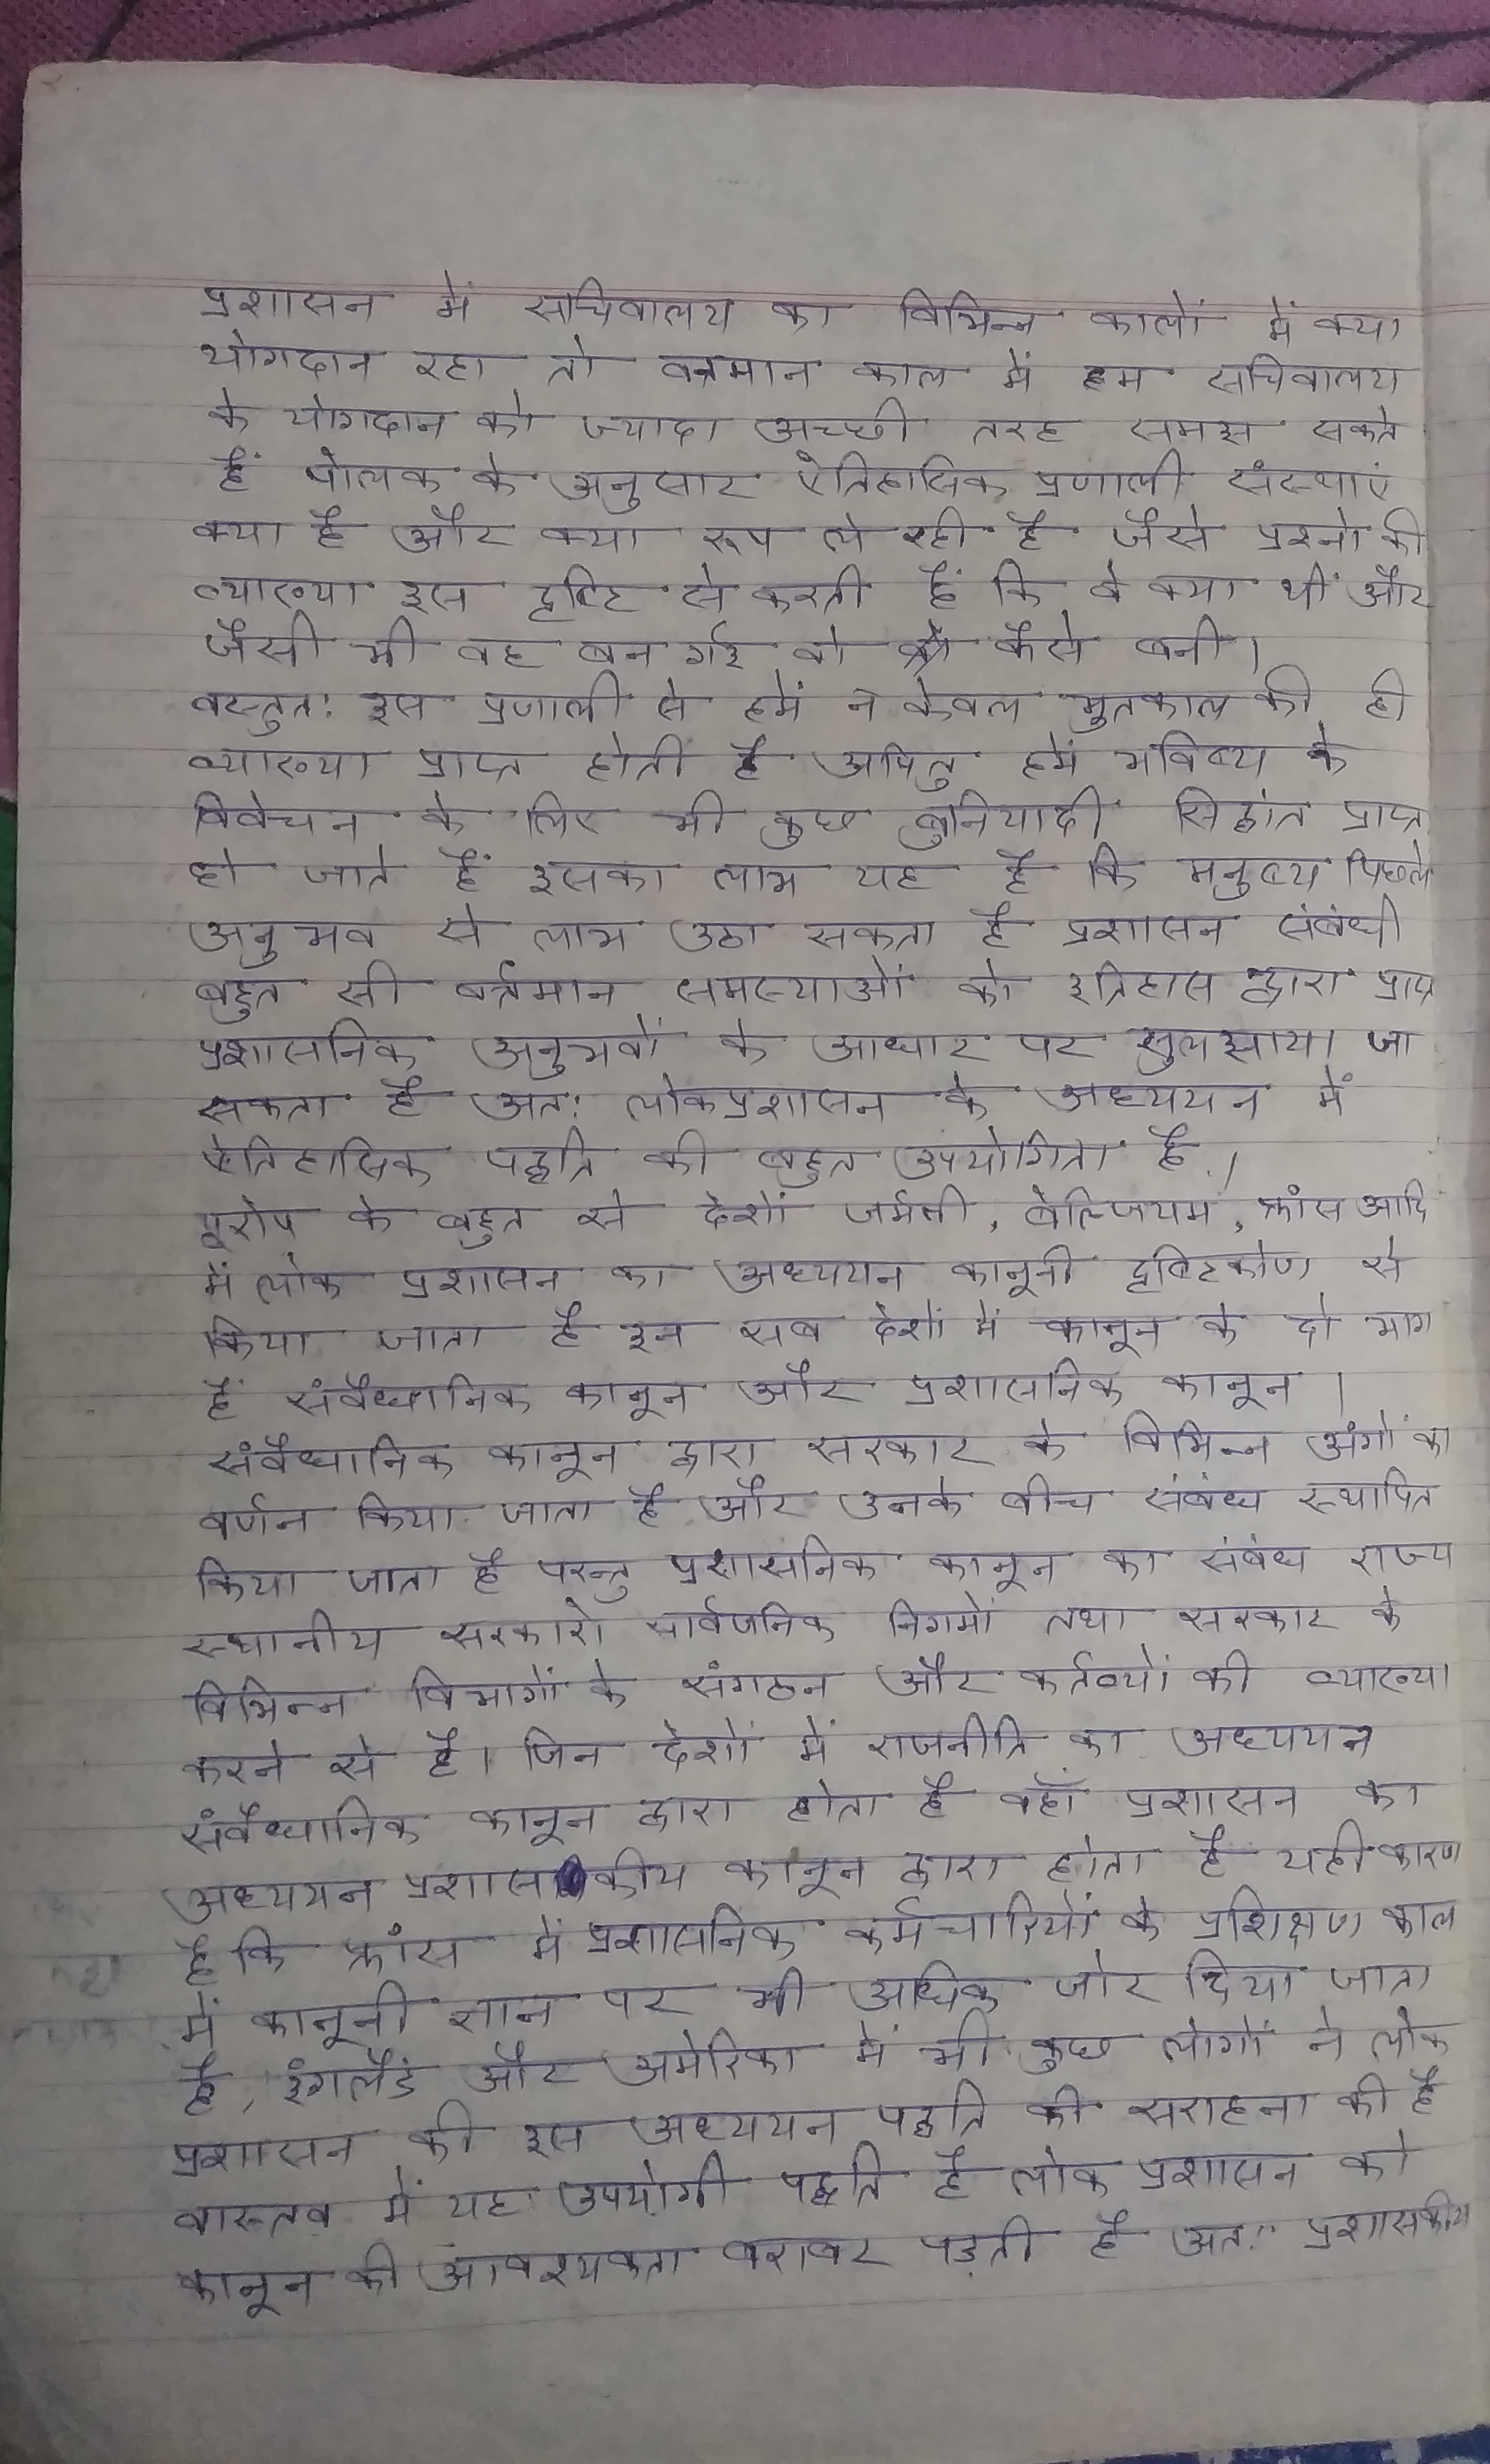 प्रशासन में सचिवालय का विभिन्न कालों में क्या
योगदान रहा तो वर्तमान काल में हम सचिवालय
के योगदान को ज्यादा अच्छी तरह समझ सकते
हैं पोलक के अनुसार ऐतिहासिक प्रणाली संस्थाएं
क्या है और क्या रूप ले रही है जैसे प्रश्नो की
व्याख्या इस दृष्टि से करती हैं कि वे क्या थीं और
जैसी भी वह बन गई वो कैसे बनी।
वस्तुत: इस प्रणाली से हमें न केवल भुतकाल की ही
व्याख्या प्राप्त होती है अपितु हमें भविष्य के
विवेचन के लिए भी कुछ बुनियादी सिद्धांत प्राप्त
हो जाते हैं इसका लाभ यह है कि मनुष्य पिछले
अनुभव से लाभ उठा सकता है प्रशासन संबंधी
बहुत सी वर्तमान समस्याओं को इतिहास द्वारा प्राप्त
प्रशासनिक अनुभवों के आधार पर सुलझाया जा
सकता है अत: लोकप्रशासन के अध्ययन में
ऐतिहासिक पद्धति की बहुत उपयोगिता है।
यूरोप के बहुत से देशों जर्मनी, बेल्जियम, फ्रांस आदि
में लोक प्रशासन का अध्ययन कानूनी दृष्टिकोण से
किया जाता है इन सब देशों में कानून के दो भाग
हैं संवैधानिक कानून और प्रशासनिक कानून।
संवैधानिक कानून द्वारा सरकार के विभिन्न अंगों का
वर्णन किया जाता है और उनके बीच संबंध स्थापित
किया जाता है परन्तु प्रशासनिक कानून का संबंध राज्य
स्थानीय सरकारो सार्वजनिक निगमों तथा सरकार के
विभिन्न विभागों के संगठन और कर्तव्यों की व्याख्या
करने से है। जिन देशों में राजनीति का अध्ययन
संवैधानिक कानून द्वारा होता है वहाँ प्रशासन का
अध्ययन प्रशासकीय कानून द्वारा होता है यही कारण
है कि फ्रांस में प्रशासनिक कर्मचारियों के प्रशिक्षण काल
में कानूनी ज्ञान पर भी अधिक जोर दिया जाता
है, इंगलैंड और अमेरिका में भी कुछ लोगों ने लोक
प्रशासन की इस अध्ययन पद्धति की सराहना की है
वास्तव में यह उपयोगी पद्धति है लोक प्रशासन को
कानून की आवश्यकता बराबर पड़ती है अत: प्रशासकीय